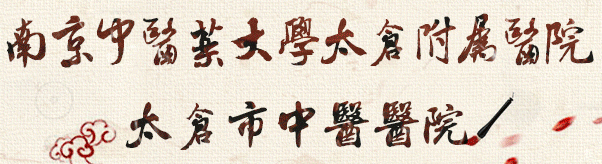 南京中醫药大學太倉附属醫院
太倉市中醫醫院